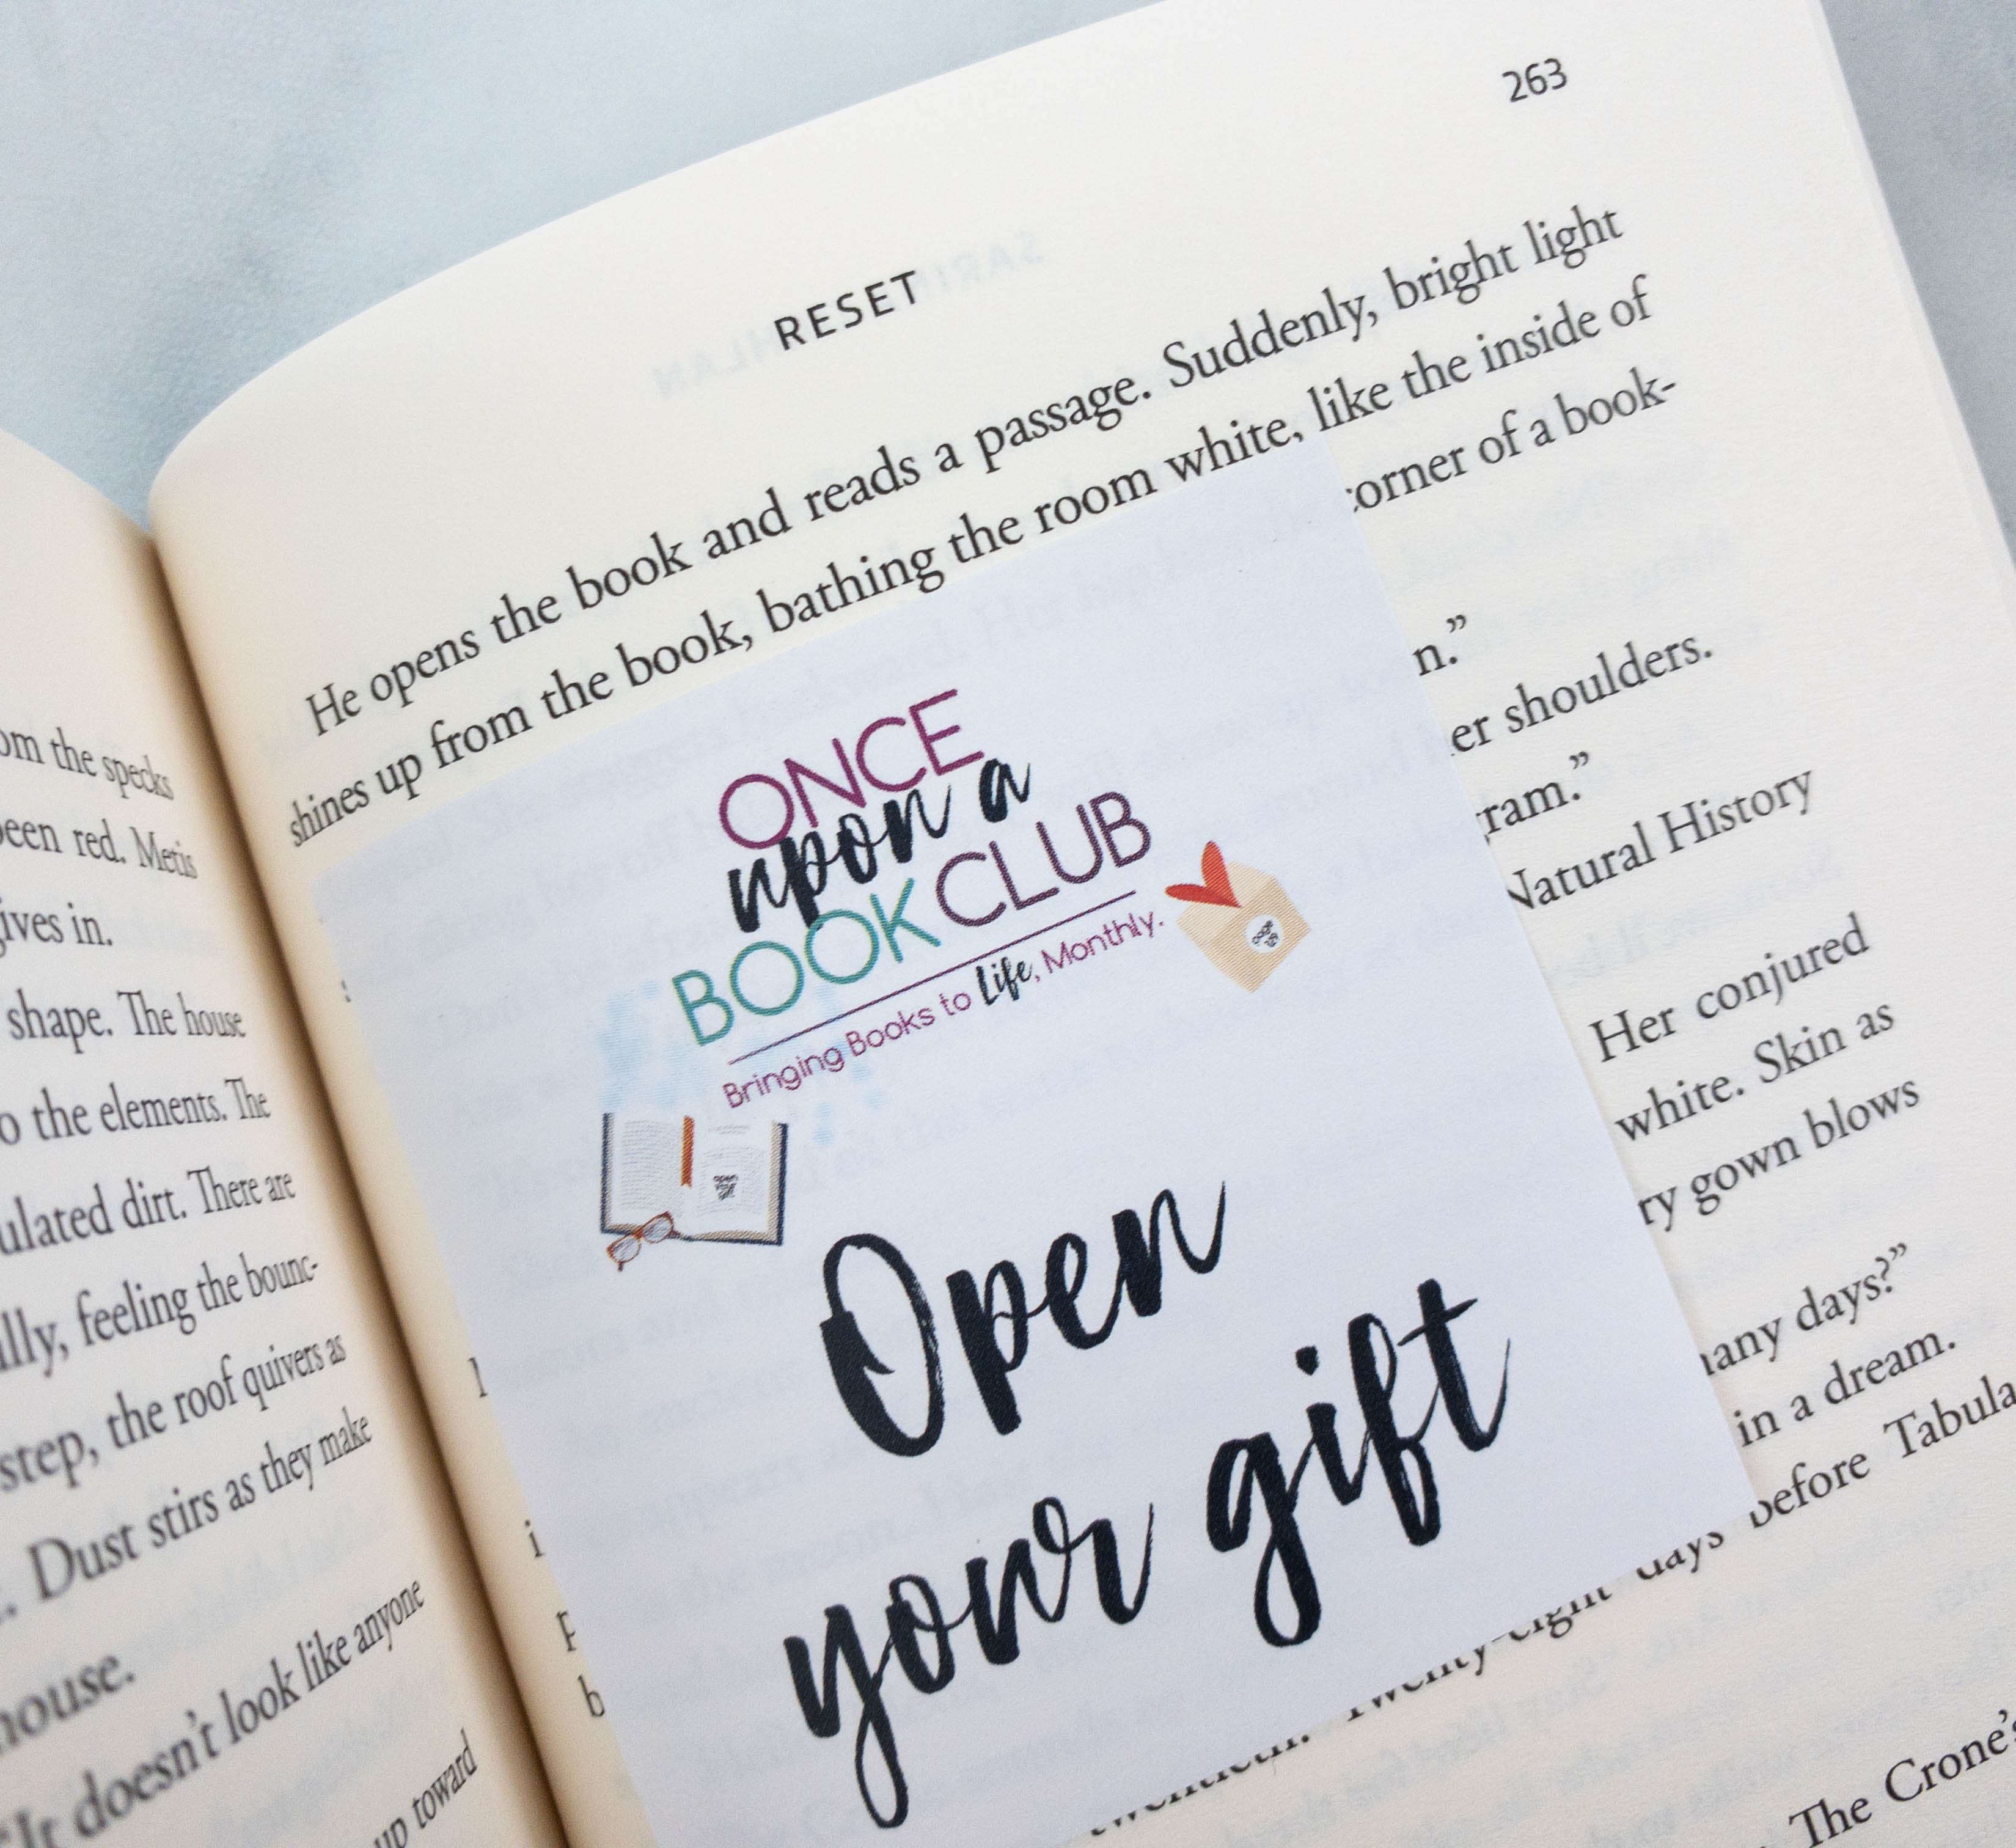 om the specks
been red. Metis
ives in.
shape. The house
o the elements. The
ulated dirt. There are
lly, feeling the bounc-
step, the roof quivers as
Dust stirs as they make
house.
"It doesn't look like anyone
up toward
263
RESET
He opens the book and reads a passage. Suddenly, bright light
shines up from the book, bathing the room white, like the inside of
corner of a book-
n."
er shoulders.
gram."
Natural History
Her conjured
white. Skin as
ry gown blows
many days?"
in a dream.
days before Tabula
twentieth. Twenty-eight
The Crone's
ONCE
upon a
BOOK CLUB
Bringing Books to Life, Monthly.
Open
your gift